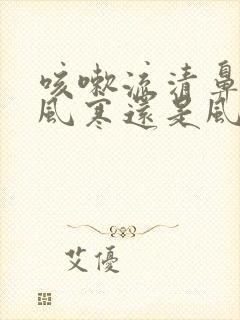 咳嗽流清鼻
風寒還是風
艾優